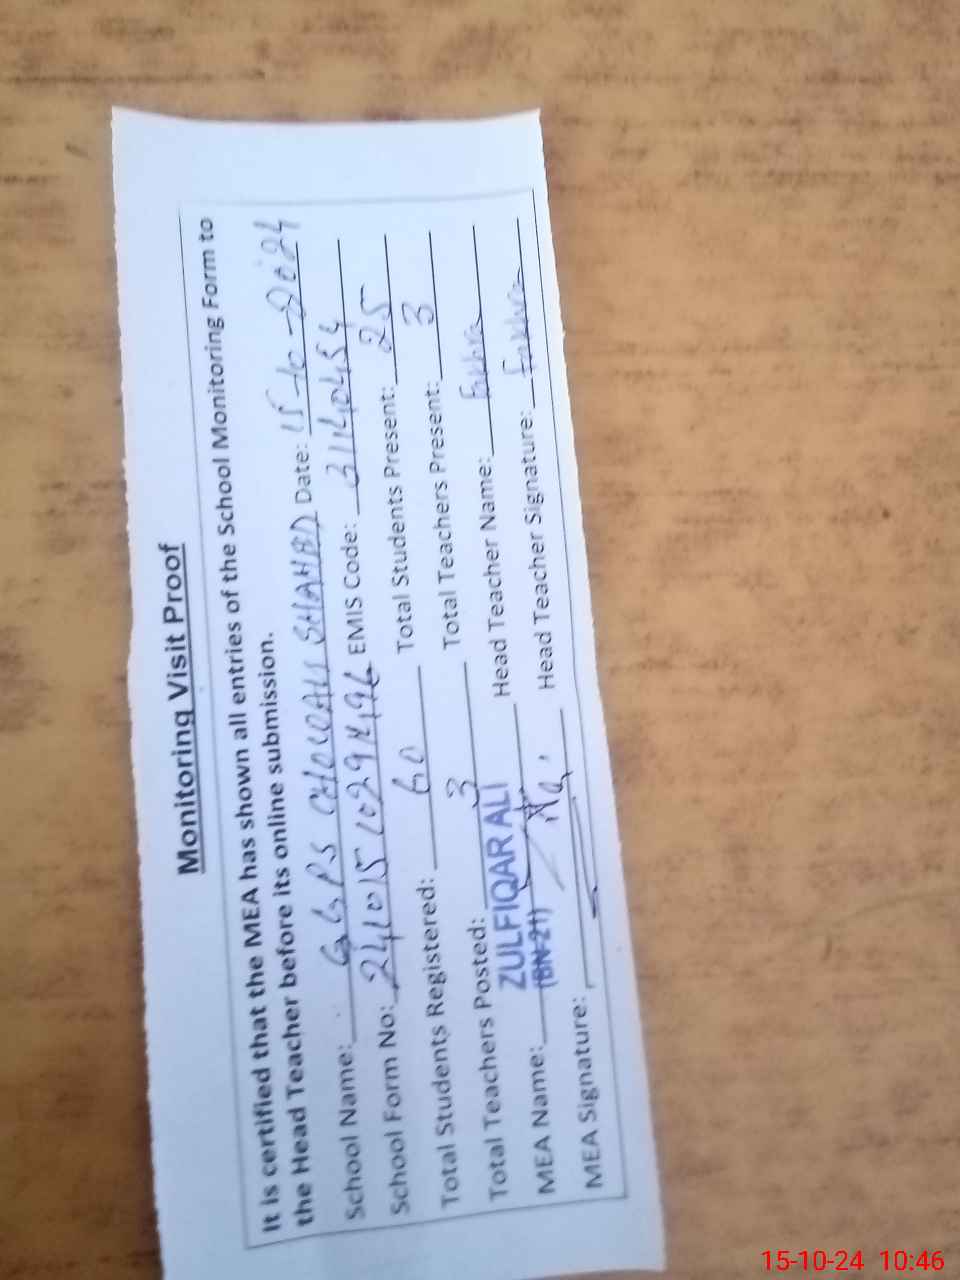 Monitoring Visit Proof
It is certified that the MEA has shown all entries of the School Monitoring Form to
the Head Teacher before its online submission.
School Name: GGPS CHOWALI SHAHBD Date: 15-10-2024
School Form No: EMIS Code: 31140454
Total Students Registered: 60 Total Students Present: 25
Total Teachers Posted: 3 Total Teachers Present: 3
ZULFIQAR ALI
MEA Name: (BN-21) Head Teacher Name: Fakhra
MEA Signature: Head Teacher Signature: Fakhra
15-10-24 10:46